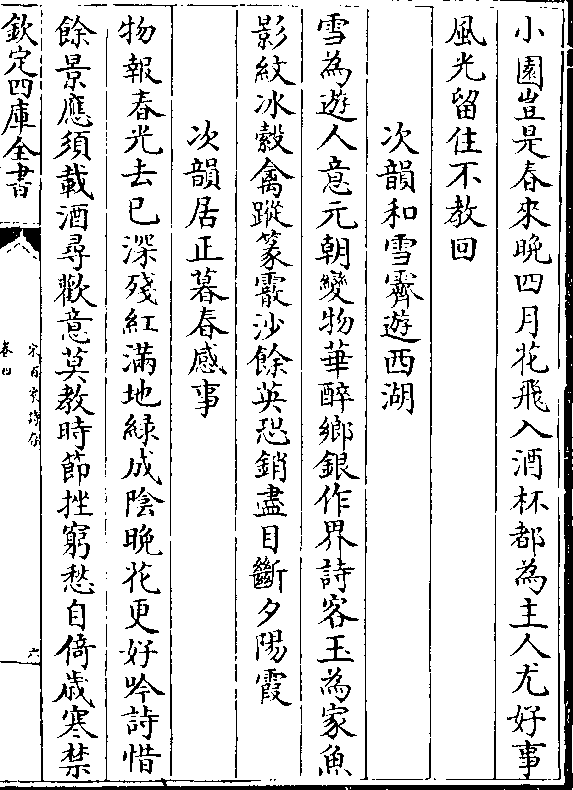 小園豈是春來晚四月花飛入酒杯都為主人尤好事
風光留住不教回
次韻和雪霽遊西湖
雪為遊人意元朝變物華醉鄉銀作界詩客玉為家魚
影紋冰縠禽蹤篆霰沙餘英恐銷盡目斷夕陽霞
次韻居正暮春感事
物報春光去已深殘紅滿地緑成陰晚花更好吟詩惜
餘景應須載酒尋歡意莫教時節挫窮愁自倚歲寒禁
欽定四庫全書
卷四
六